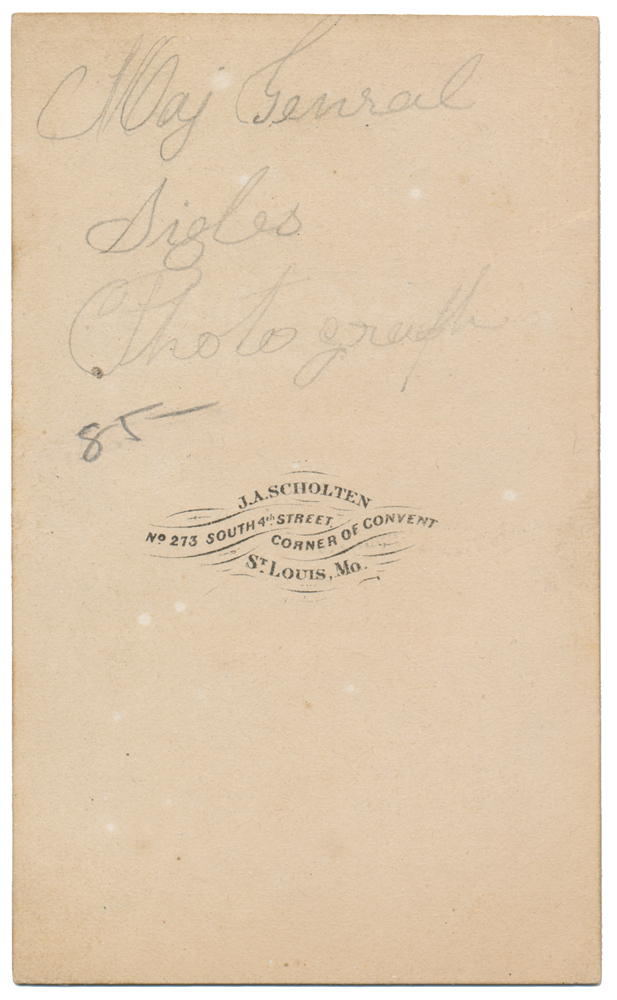 Maj Genral
Sigles
Photograph
85—
J.A.SCHOLTEN
Nº 273 SOUTH 4th STREET,
CORNER OF CONVENT
ST. LOUIS, Mo.